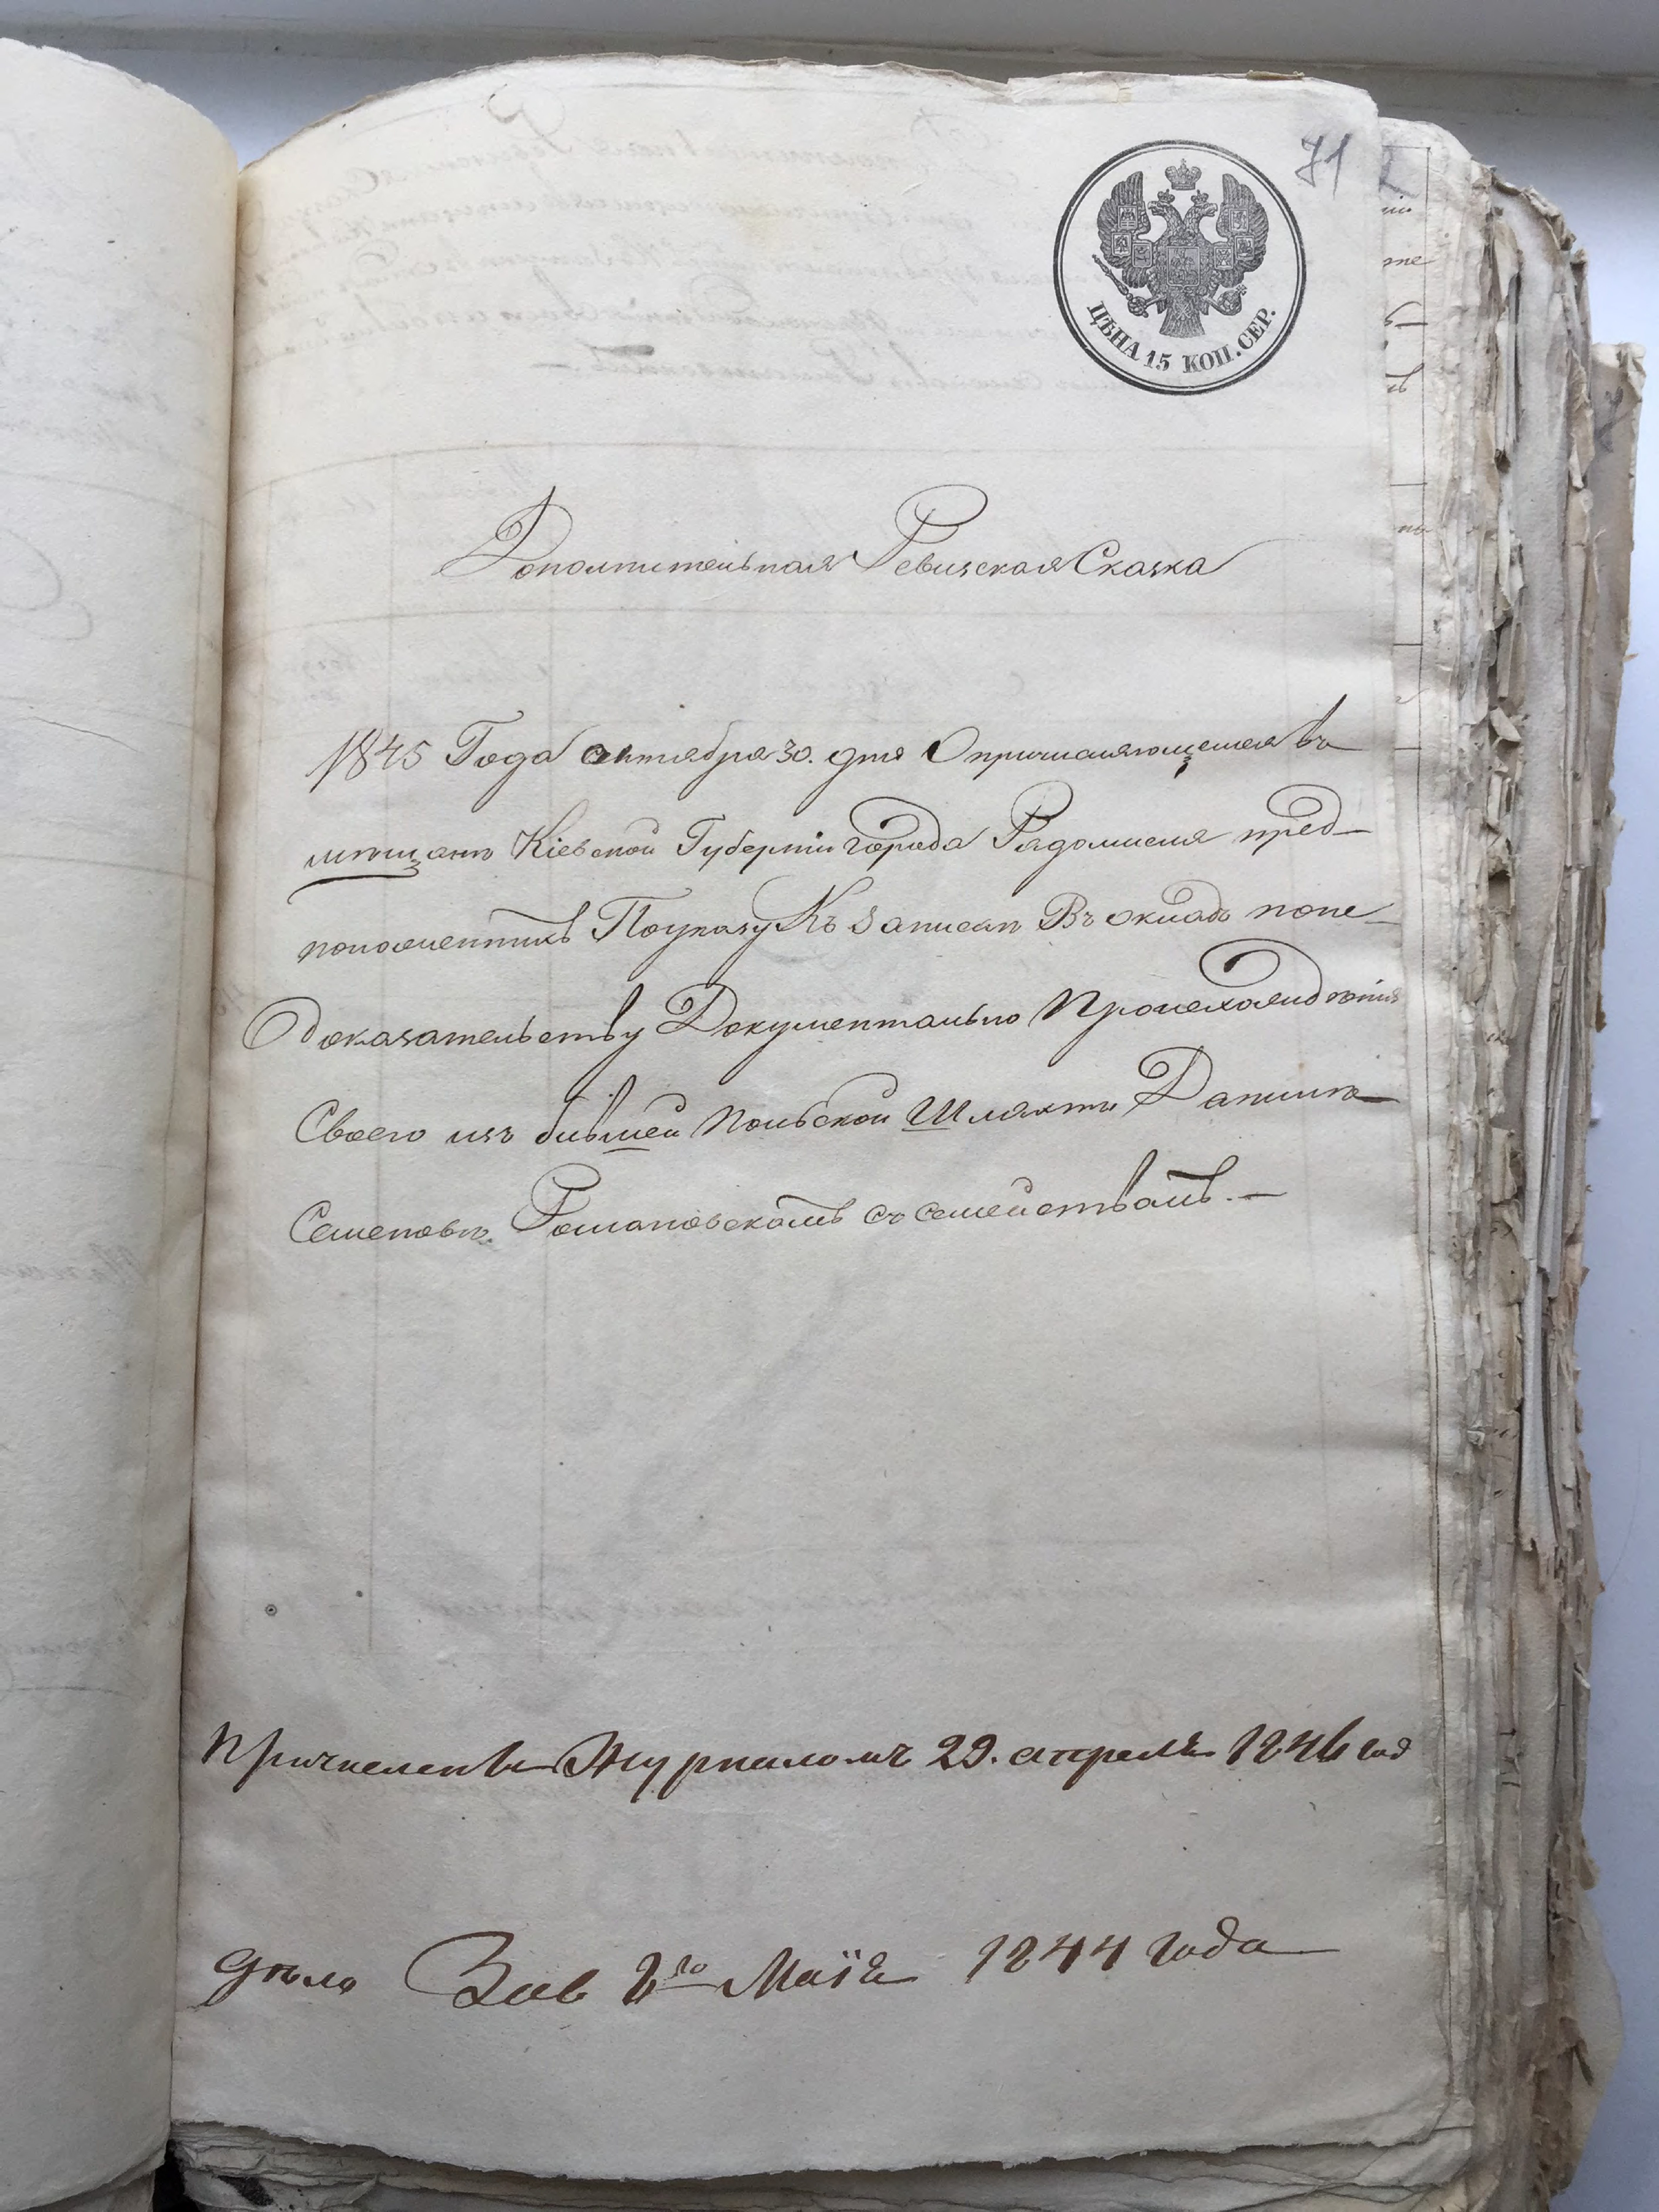 71
ЦѢНА 15 КОП. СЕР.
Дополнительная Ревизская Сказка
1845 Года октября 30. дня О причисляющемся въ
мѣщанѣ Кіевской Губерніи города Радомисля пред-
положеннимъ Поуказу Къ записки Въ окладъ попе-
Доказательству Документально Происхожидѣнія
Своего изъ бывшей Польской Шляхти Данилѣ
Семеновѣ Романовскомъ съ семействомъ. —
Причисленъ Журналомъ 29. апреля 1846 год
дѣло 2го Маія 1844 года